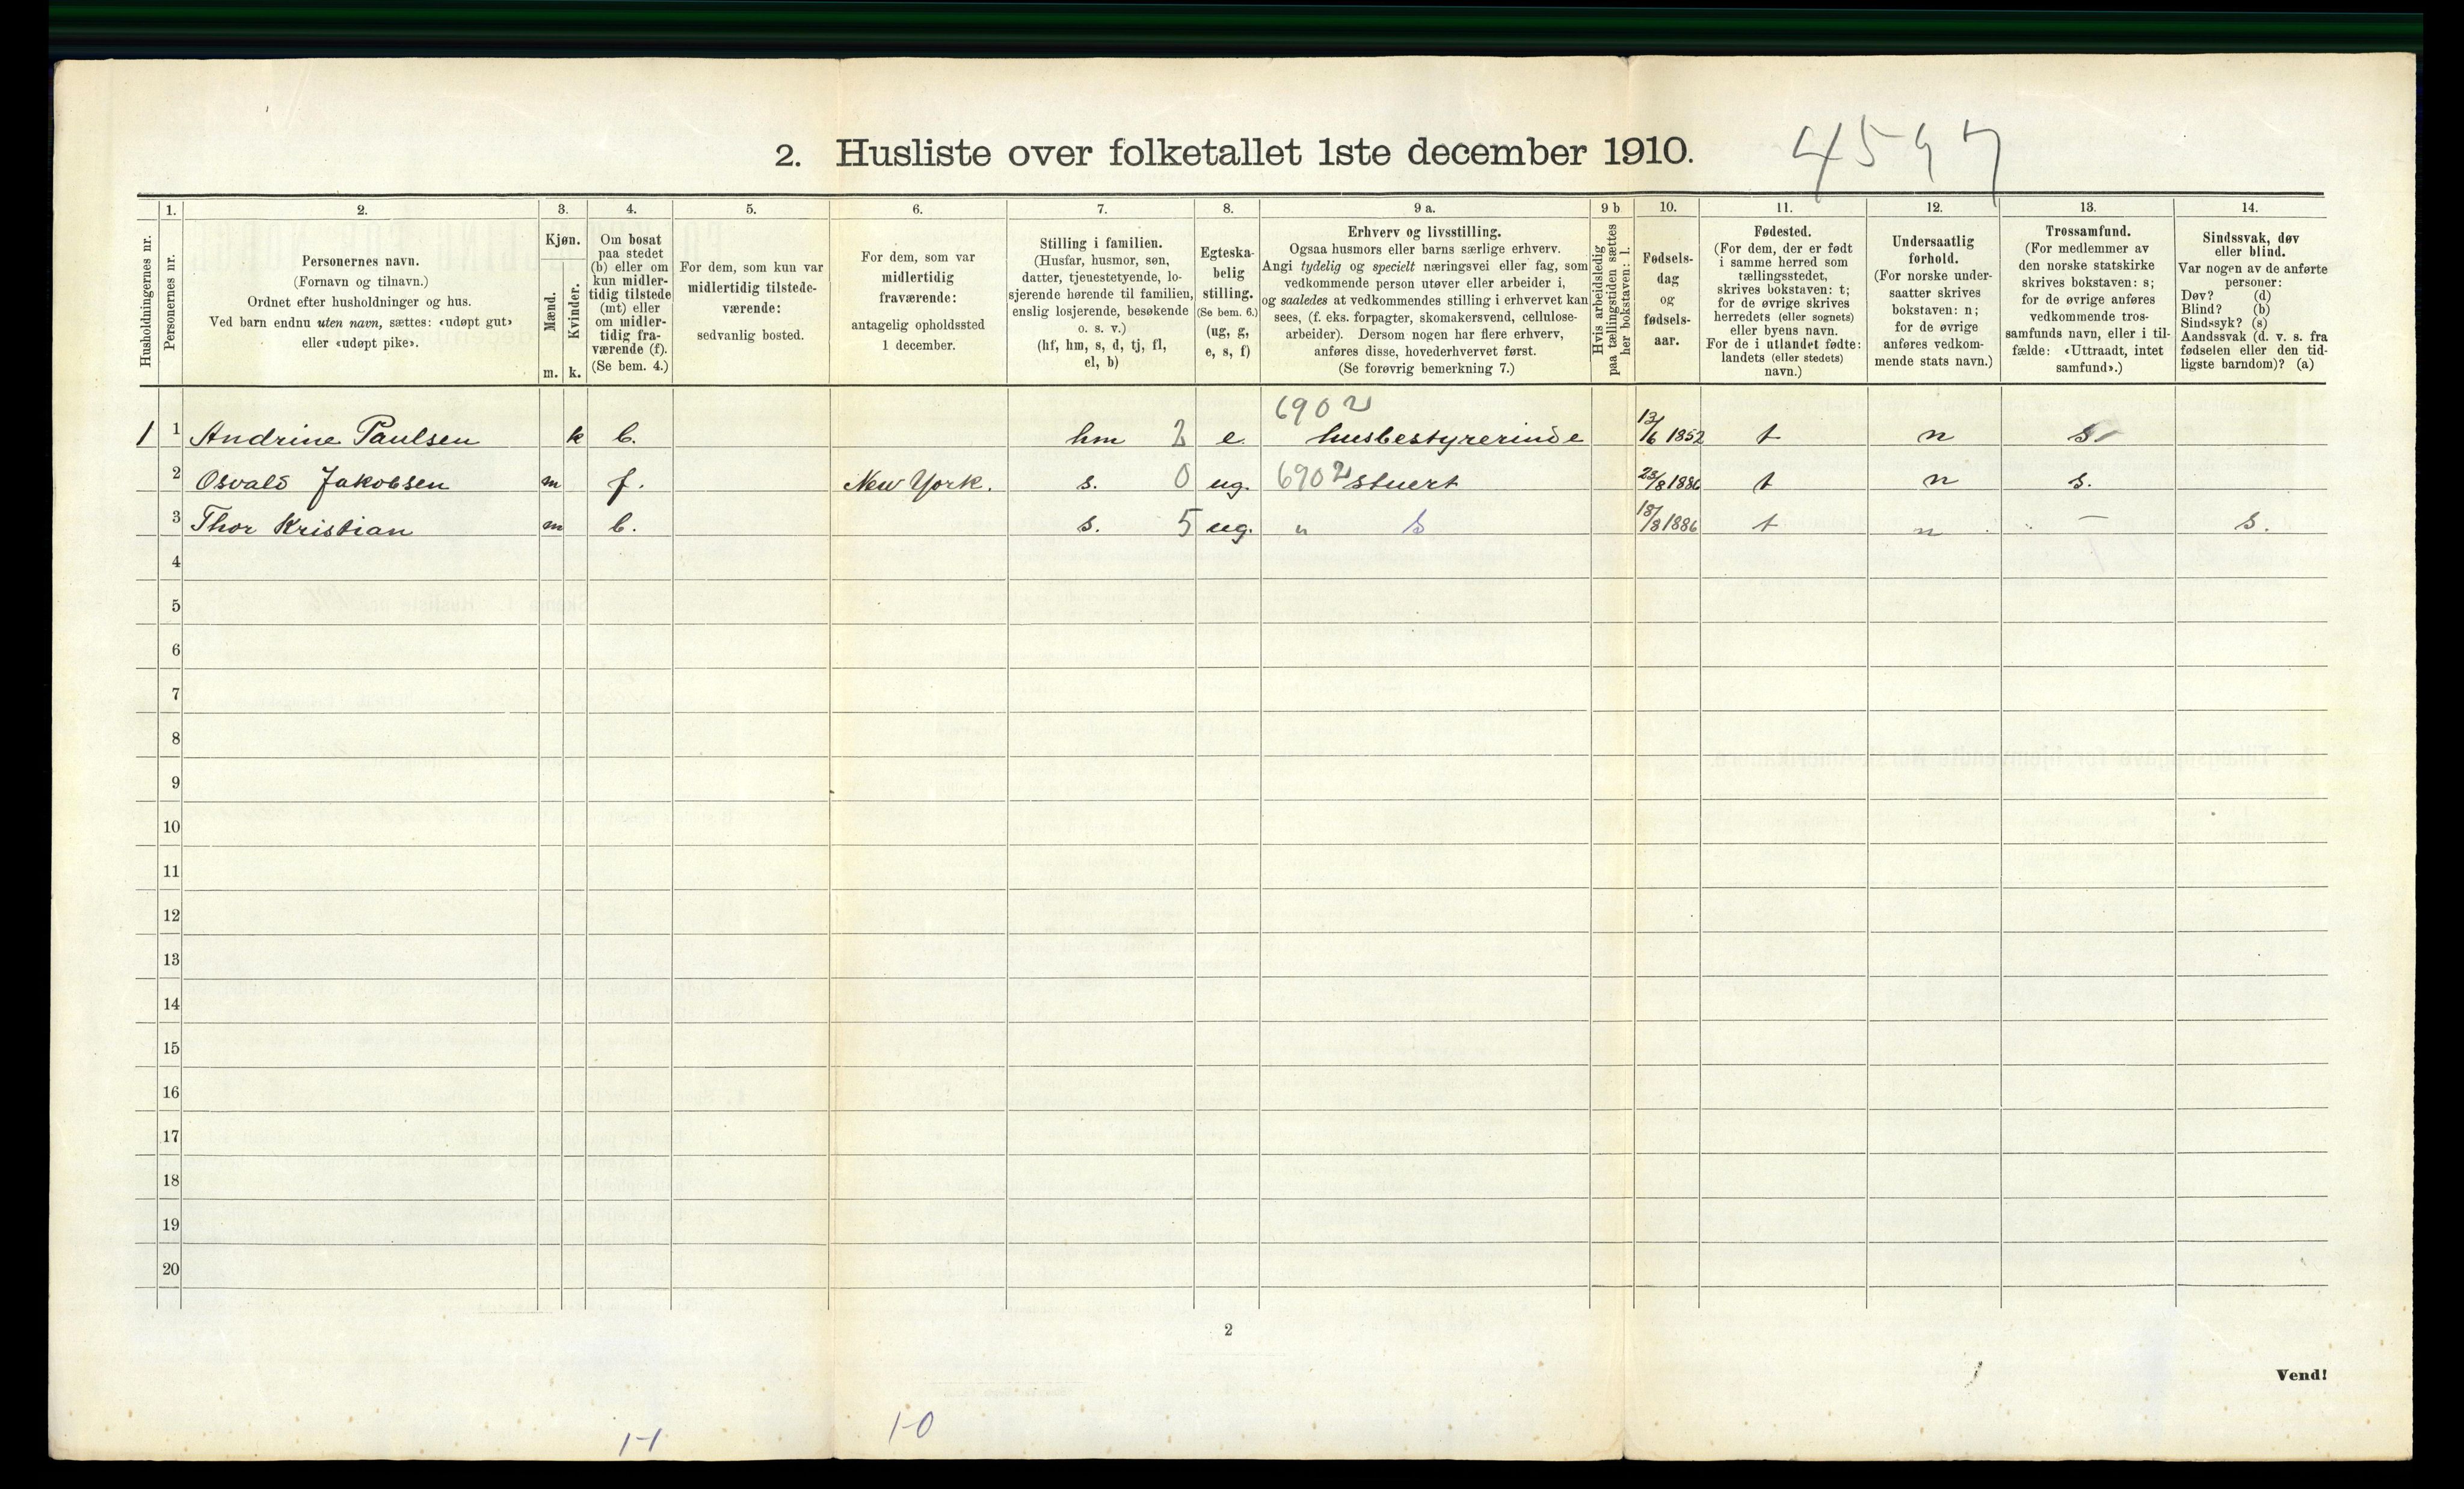 2. Husliste over folketallet 1ste december 1910.
4597
Husholdningernes nr.
1.
Personernes nr.
2.
Personernes navn.
(Fornavn og tilnavn.)
Ordnet efter husholdninger og hus.
Ved barn endnu uten navn, sættes: «udøpt gut»
eller «udøpt pike».
3.
Kjøn.
Mænd.
Kvinder.
m. k.
4.
Om bosat
paa stedet
(b) eller om
kun midler-
tidig tilstede
(mt) eller
om midler-
tidig fra-
værende (f).
(Se bem. 4.)
5.
For dem, som kun var
midlertidig tilstede-
værende:
sedvanlig bosted.
6.
For dem, som var
midlertidig
fraværende:
antagelig opholdssted
1 december.
7.
Stilling i familien.
(Husfar, husmor, søn,
datter, tjenestetyende, lo-
sjerende hørende til familien,
enslig losjerende, besøkende
o. s. v.)
(hf, hm, s, d, tj, fl,
el, b)
8.
Egteska-
belig
stilling.
(Se bem. 6.)
(ug, g,
e, s, f)
9 a.
Erhverv og livsstilling.
Ogsaa husmors eller barns særlige erhverv.
Angi tydelig og specielt næringsvei eller fag, som
vedkommende person utøver eller arbeider i,
og saaledes at vedkommendes stilling i erhvervet kan
sees, (f. eks. forpagter, skomakersvend, cellulose-
arbeider). Dersom nogen har flere erhverv,
anføres disse, hovederhvervet først.
(Se forøvrig bemerkning 7.)
9 b
Hvis arbeidsledig
paa tællingstiden sættes
her bokstaven: l.
10.
Fødsels-
dag
og
fødsels-
aar.
11.
Fødested.
(For dem, der er født
i samme herred som
tællingsstedet,
skrives bokstaven: t;
for de øvrige skrives
herredets (eller sognets)
eller byens navn.
For de i utlandet fødte:
landets (eller stedets)
navn.)
12.
Undersaatlig
forhold.
(For norske under-
saatter skrives
bokstaven: n;
for de øvrige
anføres vedkom-
mende stats navn.)
13.
Trossamfund.
(For medlemmer av
den norske statskirke
skrives bokstaven: s;
for de øvrige anføres
vedkommende tros-
samfunds navn, eller i til-
fælde: «Uttraadt, intet
samfund».)
14.
Sindssvak, døv
eller blind.
Var nogen av de anførte
personer:
Døv? (d)
Blind? (b)
Sindssyk? (s)
Aandssvak (d. v. s. fra
fødselen eller den tid-
ligste barndom)? (a)
6902
1 1 Andrine Paulsen k b. hm 2 e. husbestyrerinde 13/6 1852 t n s
2 Osvald Jakobsen m f. New York. s. 0 ug. 6902 stuert 23/8 1886 t n s.
3 Thor Kristian m b. s. 5 ug. " s 18/8 1886 t n " — s.
4
5
6
7
8
9
10
11
12
13
14
15
16
17
18
19
20
2
Vend!
1-0
1-1